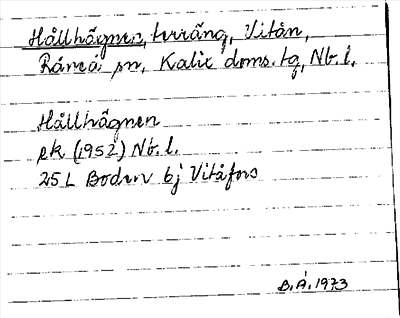 Hållhägnen, terräng, Vitån,
Råneå sn, Kalix doms. tg, Nb. l.
Hållhägnen
ek (1952) Nb. l.
25 L Boden 6j Vitåfors
B.Å. 1973